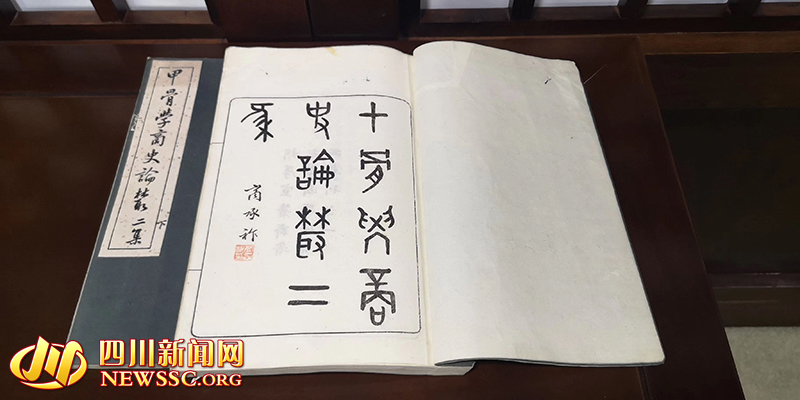 甲骨学商史論叢二集
下
甲骨學商
史論叢二
集
商承祚
四川新闻网
NEWSSC.ORG